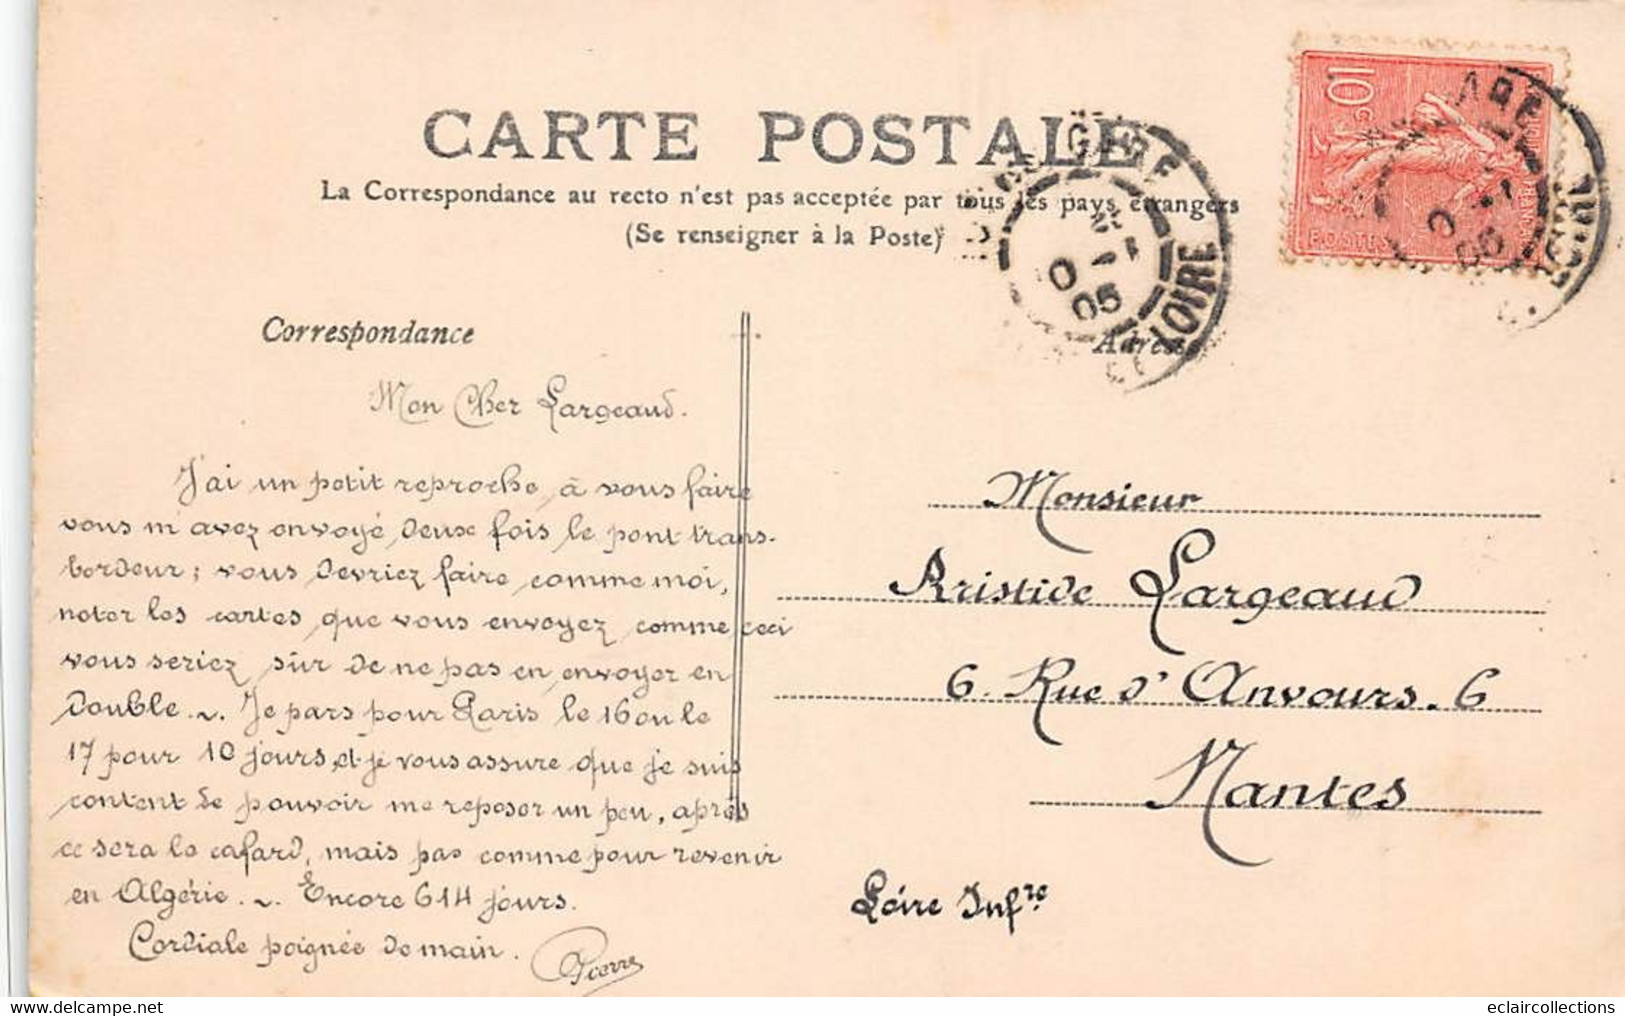 CARTE POSTALE
La Correspondance au recto n'est pas acceptée par tous les pays étrangers
(Se renseigner à la Poste)
10c
POSTES
GARE
05
LOIRE
05
Correspondance
Adresse
Mon Cher Largeaud.
J'ai un petit reproche, à vous faire
vous m'avez envoyé deux fois le pont trans-
bordeur; vous devriez faire comme moi,
noter les cartes que vous envoyez comme ceci
vous seriez sûr de ne pas en envoyer en
double. ~. Je pars pour Paris le 16 ou le
17 pour 10 jours, et je vous assure que je suis
content de pouvoir me reposer un peu, après
ce sera le cafard, mais pas comme pour revenir
en Algérie. ~. Encore 614 jours.
Cordiale poignée de main.
Pierre
Monsieur
Aristide Largeaud
6. Rue d'Anvours. 6
Nantes
Loire Infre
delcampe.net
eclaircollections